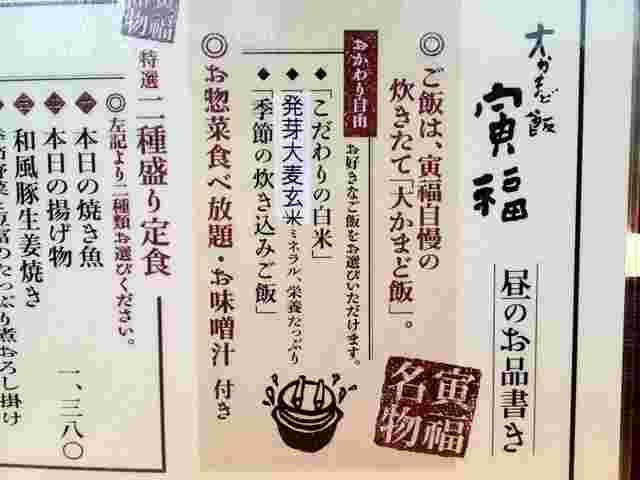 大かまど飯
寅福
昼のお品書き
◎ご飯は、寅福自慢の
炊きたて「大かまど飯」。
おかわり自由
お好きなご飯をお選びいただけます。
◆「こだわりの白米」
◆発芽大麦玄米ミネラル、栄養たっぷり
◆「季節の炊き込みご飯」
◎お惣菜食べ放題・お味噌汁付き
寅福
名物
寅福
名物
特選二種盛り定食
◎左記より二種類お選びください。
一本日の焼き魚
二本日の揚げ物
三和風豚生姜焼き
一、三八〇
たっぷり煮おろし掛け